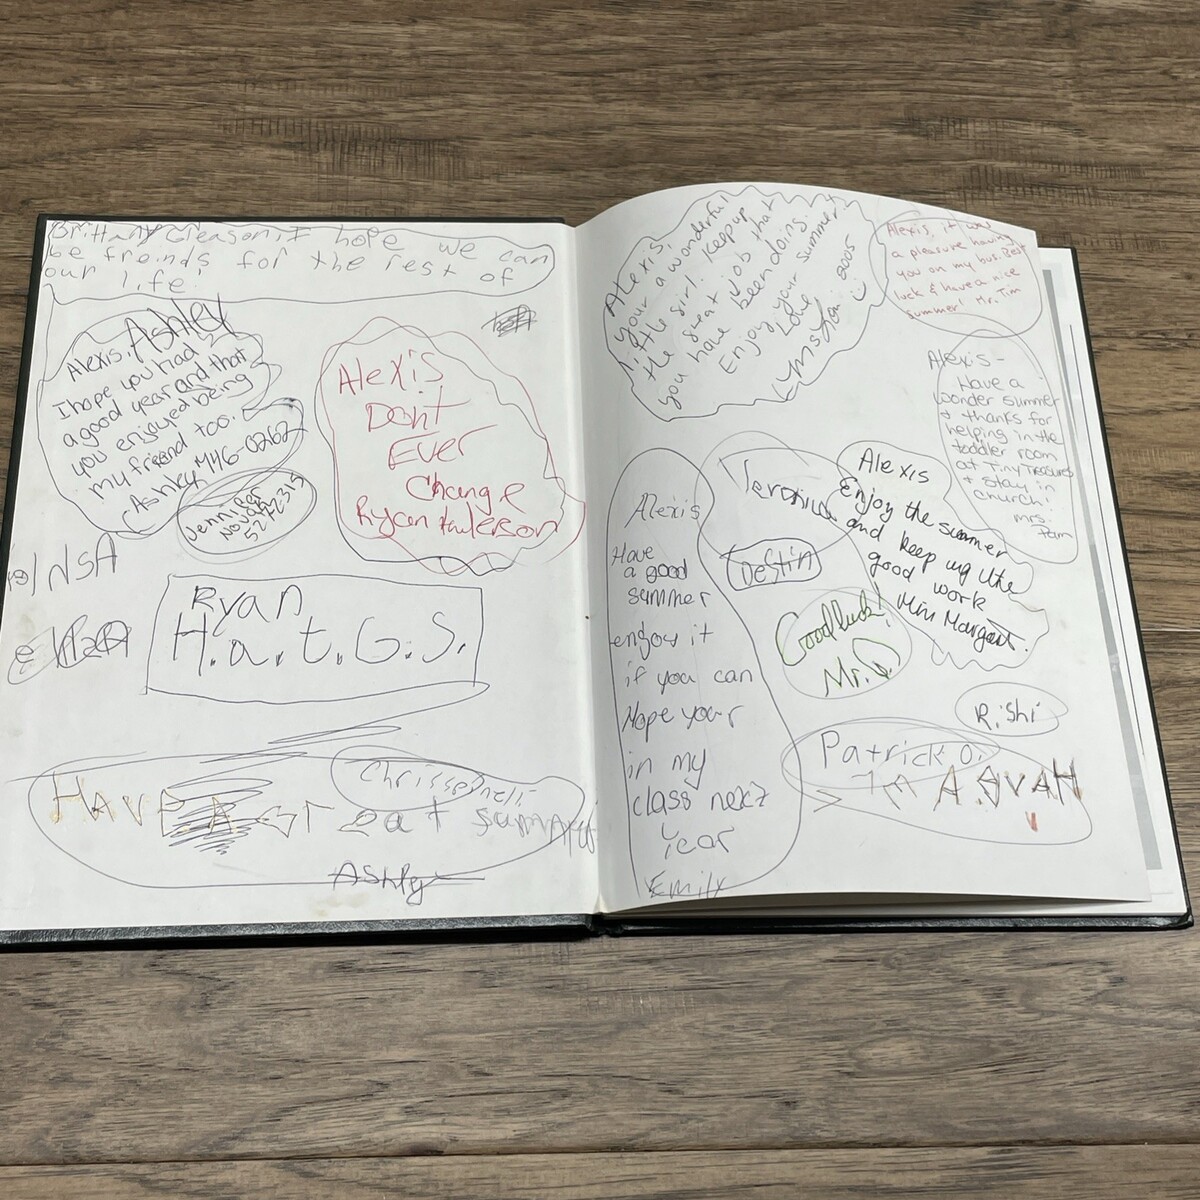 Brittany Gleason, I hope we can
be freinds for the rest of
our life!
Ashley
Alexis,
I hope you had
a good year and that
you enjoyed being
my friend too.
Ashley 446-0262
Jennifer
Novak
527-2315
Alexis
Dont
Ever
Change
Ryan
Ryan
H.a.t.G.S.
Chris
HAVE A
Great summ
Ashley
Alexis,
your a wonderful
little girl. Keep up
the great job that
you have been doing.
Enjoy your summer
Love,
2005
Alexis, it was
a pleasure having
you on my bus. Best
luck & have a nice
summer! Mr. Tim
Alexis -
Have a
wonder summer
& thanks for
helping in the
toddler room
at Tiny Treasures
& stay in
church!
Mrs.
Pam
Veronica
Alexis
Enjoy the summer
and keep up the
good work
Miss Margaret.
Destin
Good luck!
Mr. Q
Alexis
Have
a good
summer
enjoy it
if you can
Hope your
in my
class next
year
Emily
Rishi
Patrick O.